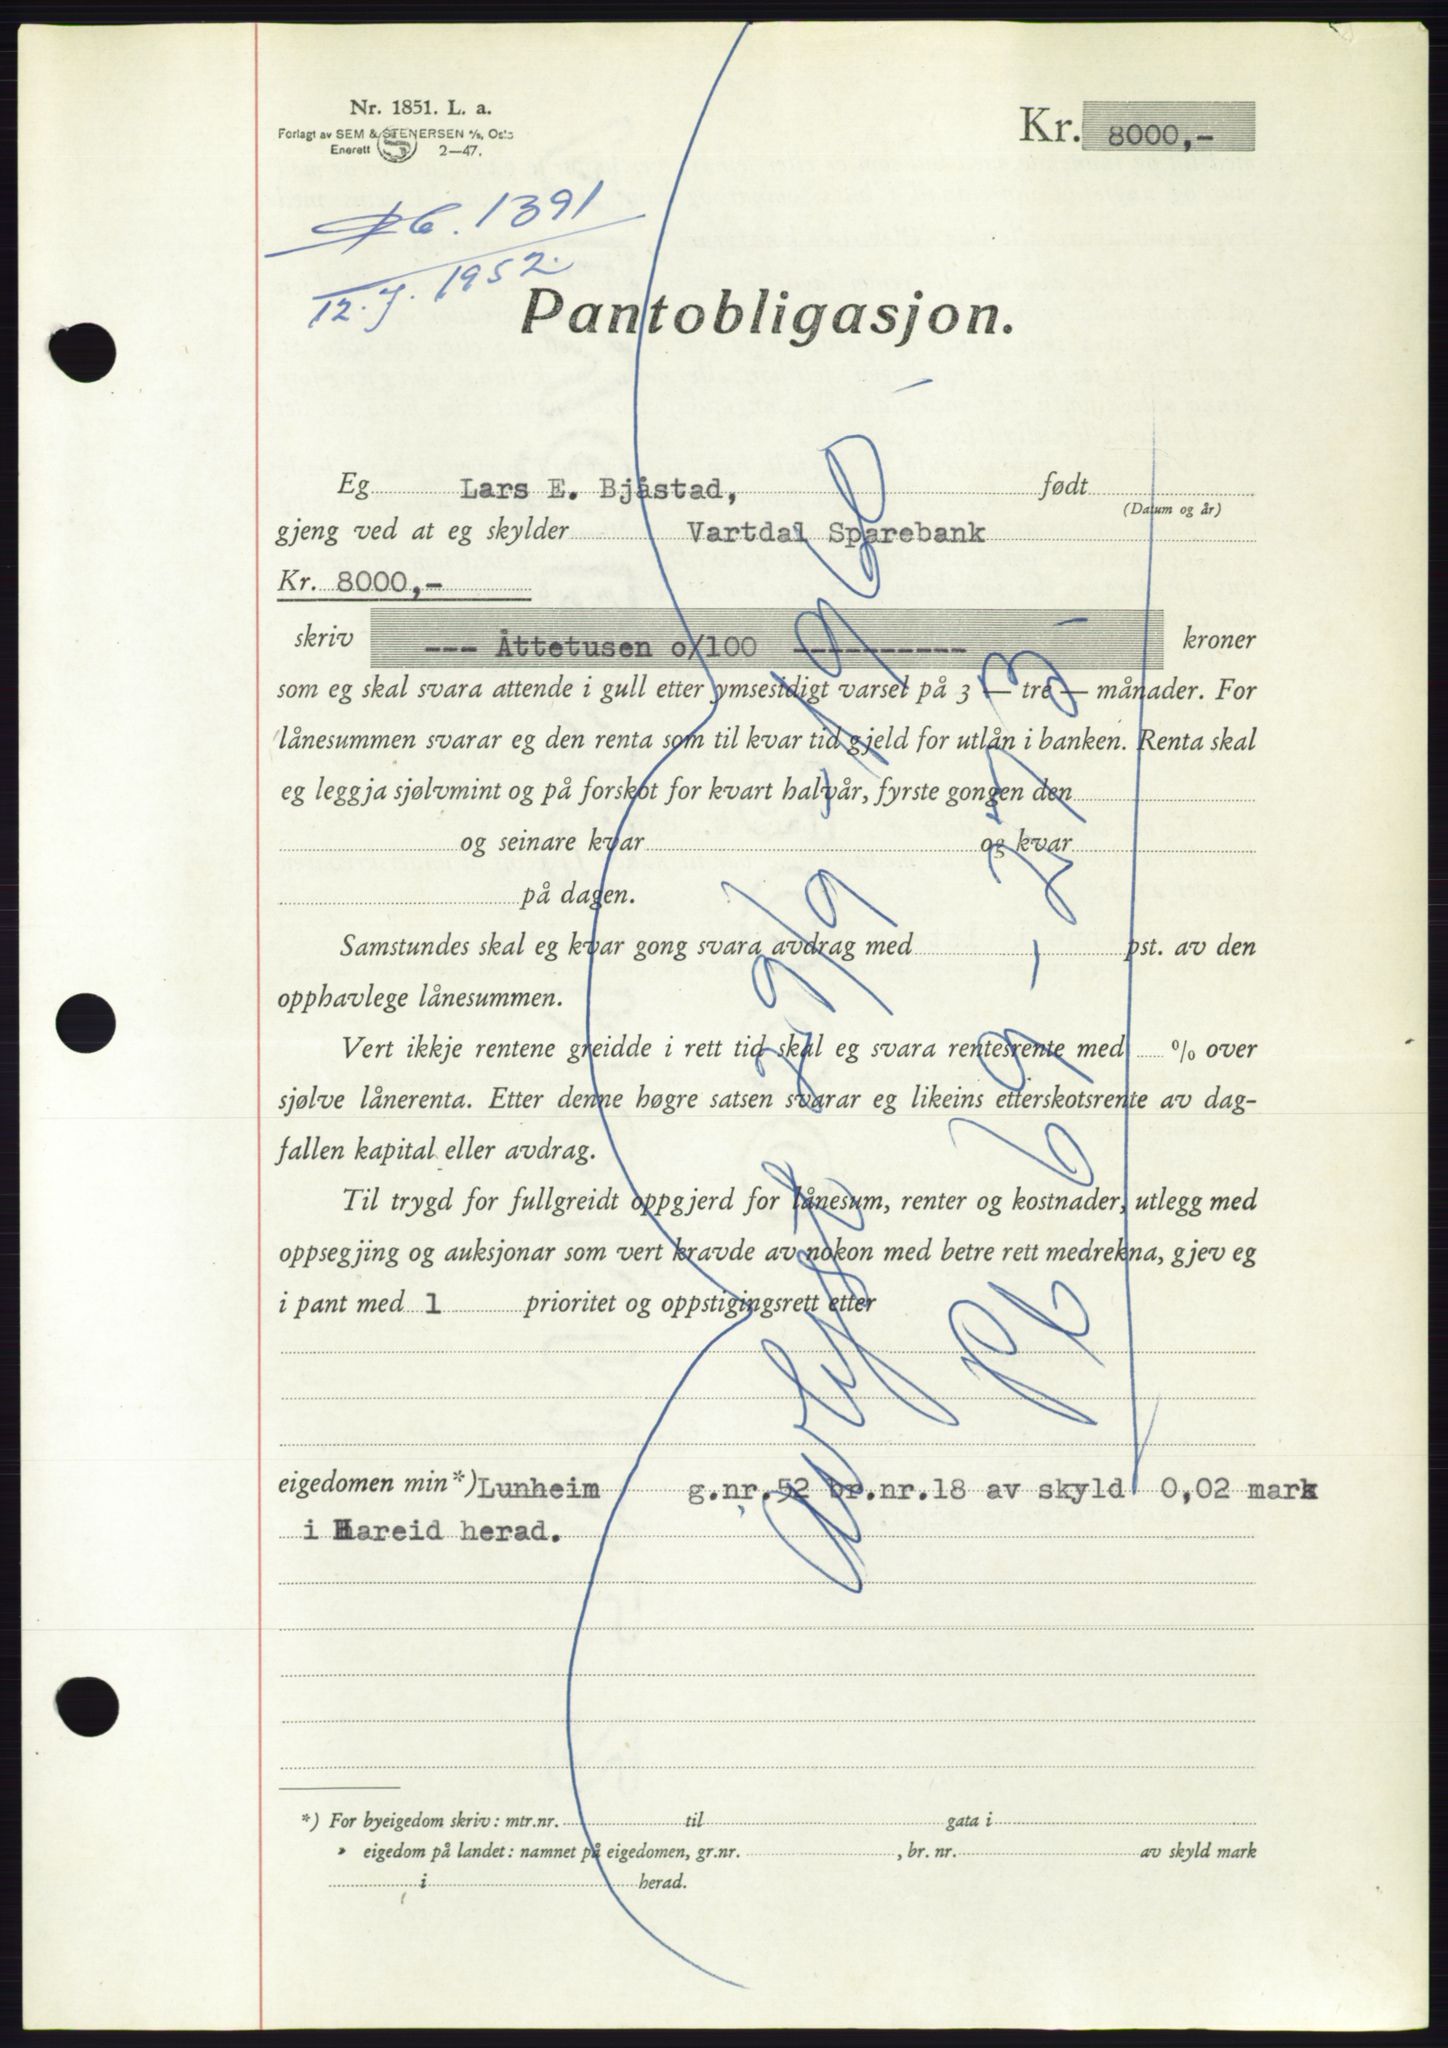 Nr. 1851. L. a.
Forlagt av SEM & STENERSEN A/s, Oslo
Enerett 2—47.
Kr. 8000,-
1391
12.7.1952.
Pantobligasjon.
Eg Lars E. Bjåstad, født
(Datum og år)
gjeng ved at eg skylder Vartdal Sparebank
Kr. 8000,-
skriv --- Åttetusen o/100 ---------- kroner
som eg skal svara attende i gull etter ymsesidigt varsel på 3 — tre — månader. For
lånesummen svarar eg den renta som til kvar tid gjeld for utlån i banken. Renta skal
eg leggja sjølvmint og på forskot for kvart halvår, fyrste gongen den
og seinare kvar og kvar
på dagen.
Samstundes skal eg kvar gong svara avdrag med pst. av den
opphavlege lånesummen.
Vert ikkje rentene greidde i rett tid skal eg svara rentesrente med % over
sjølve lånerenta. Etter denne høgre satsen svarar eg likeins etterskotsrente av dag-
fallen kapital eller avdrag.
Til trygd for fullgreidt oppgjerd for lånesum, renter og kostnader, utlegg med
oppsegjing og auksjonar som vert kravde av nokon med betre rett medrekna, gjev eg
i pant med 1 prioritet og oppstigingsrett etter
eigedomen min*) Lunheim g.nr. 52 br.nr.18 av skyld 0,02 mark
i Hareid herad.
*) For byeigedom skriv: mtr.nr. til gata i
» eigedom på landet: namnet på eigedomen, gr.nr. , br. nr. av skyld mark
i herad.
avlyst 29/9 - 1960